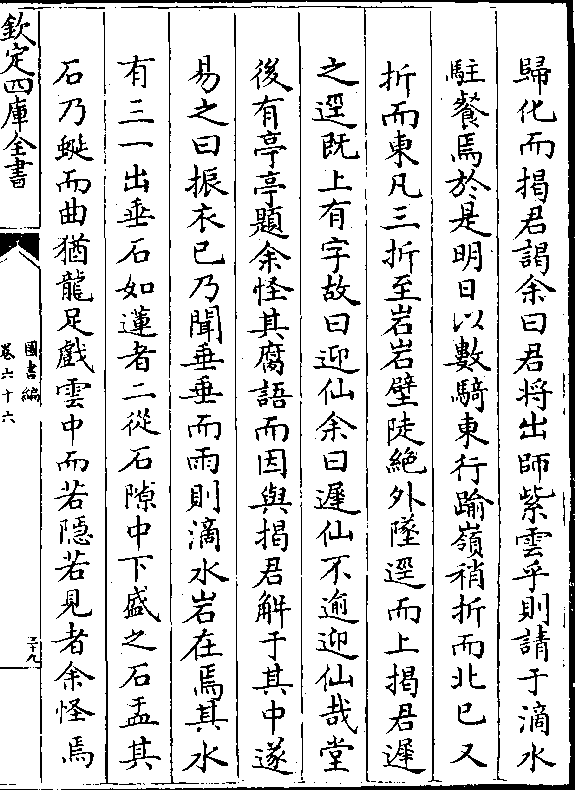 歸化而揭君謁余曰君将出師紫雲乎則請于滴水
駐餐焉於是明日以數騎東行踰嶺稍折而北已又
折而東凡三折至岩岩壁陡絶外墜逕而上揭君遲
之逕既上有字故曰迎仙余曰遲仙不逾迎仙哉堂
後有亭亭題余怪其腐語而因與揭君解于其中遂
易之曰振衣已乃聞垂垂而雨則滴水岩在焉其水
有三一出垂石如蓮者二從石隙中下盛之石盂其
石乃蜒而曲猶龍足戲雲中而若隠若見者余怪焉
欽定四庫全書
圖書編
卷六十六
三十九